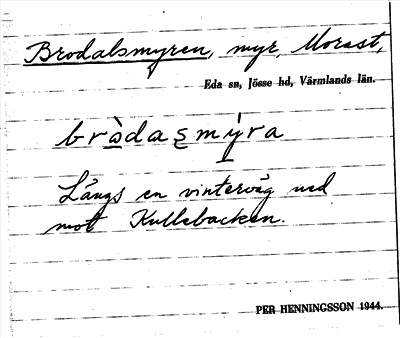 Brodalsmyren, myr, Morast,
Eda sn, Jösse hd, Värmlands län.
bròdasmýra
Längs en vinterväg ned
mot Kullebacken.
PER HENNINGSSON 1944.